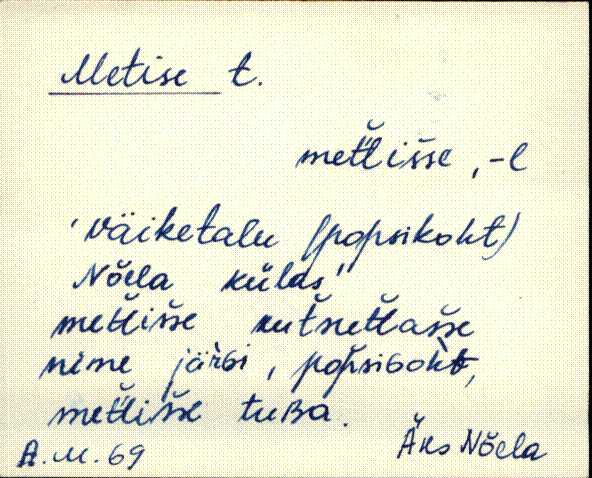 Metise t.
metťlišse, -l
'väiketalu (popsikoht)
Nõela külas'
metťlišse kutšuetťasse
nime järɢi, popsiɢoht,
metťlišse tuʙa.
A.M.69
Äks Nõela